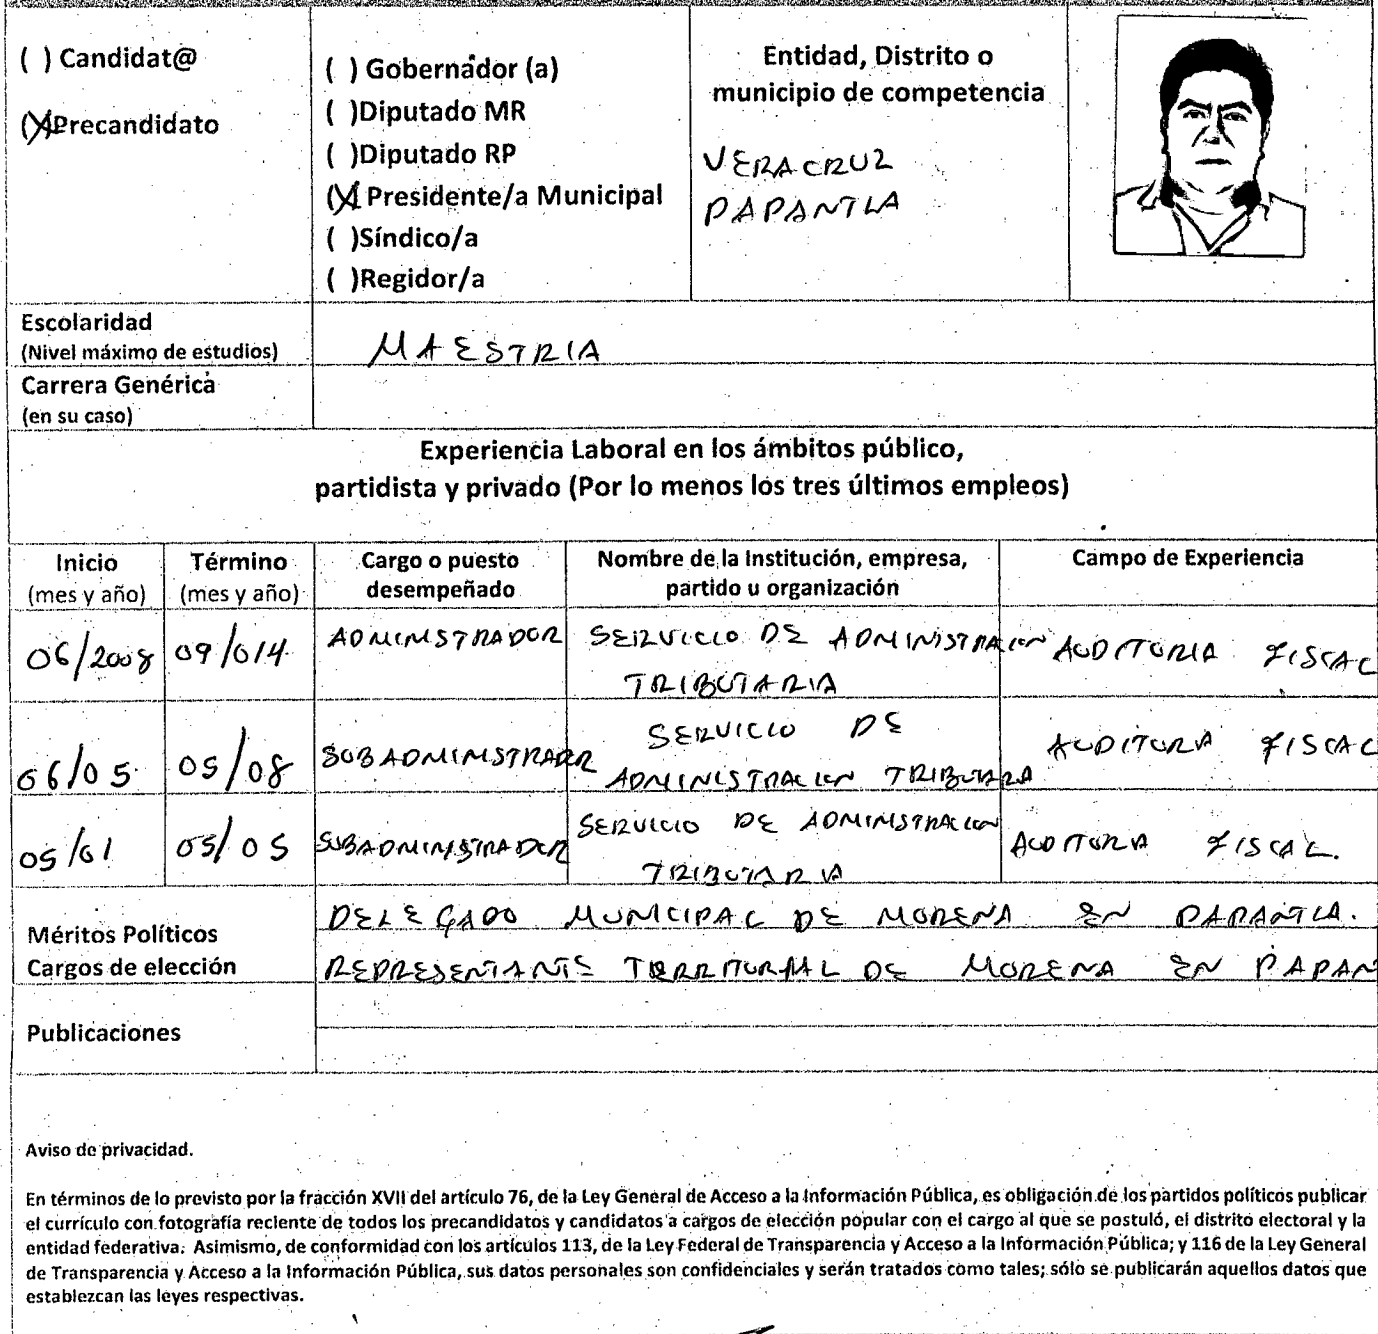 ( ) Candidat@
(X) Precandidato
( ) Gobernador (a)
( )Diputado MR
( )Diputado RP
(X) Presidente/a Municipal
( )Síndico/a
( )Regidor/a
Entidad, Distrito o
municipio de competencia
VERACRUZ
PAPANTLA
Escolaridad
(Nivel máximo de estudios)
MAESTRIA
Carrera Genérica
(en su caso)
Experiencia Laboral en los ámbitos público,
partidista y privado (Por lo menos los tres últimos empleos)
Inicio
(mes y año)
Término
(mes y año)
Cargo o puesto
desempeñado
Nombre de la Institución, empresa,
partido u organización
Campo de Experiencia
06/2008 09/014 ADMINISTRADOR SERVICIO DE ADMINISTRACION AUDITORIA FISCAL
TRIBUTARIA
06/05 05/08 SUBADMINISTRADOR SERVICIO DE AUDITORIA FISCAL
ADMINISTRACION TRIBUTARIA
05/01 05/05 SUBADMINISTRADOR SERVICIO DE ADMINISTRACION AUDITORIA FISCAL.
TRIBUTARIA
Méritos Políticos
Cargos de elección
DELEGADO MUNICIPAL DE MORENA EN PAPANTLA.
REPRESENTANTE TERRITORIAL DE MORENA EN PAPAN
Publicaciones
Aviso de privacidad.
En términos de lo previsto por la fracción XVII del artículo 76, de la Ley General de Acceso a la Información Pública, es obligación de los partidos políticos publicar
el currículo con fotografía reciente de todos los precandidatos y candidatos a cargos de elección popular con el cargo al que se postuló, el distrito electoral y la
entidad federativa. Asimismo, de conformidad con los artículos 113, de la Ley Federal de Transparencia y Acceso a la Información Pública; y 116 de la Ley General
de Transparencia y Acceso a la Información Pública, sus datos personales son confidenciales y serán tratados como tales; sólo se publicarán aquellos datos que
establezcan las leyes respectivas.